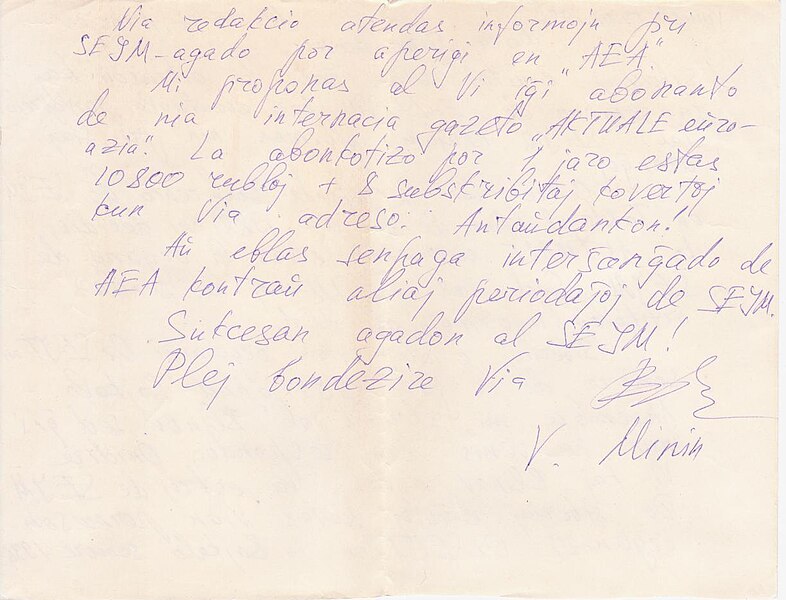 Via redakcio atendas informojn pri
SEJM-agado por aperigi en "AEA".
Mi proponas al Vi iĝi abonanto
de nia internacia gazeto „AKTUALE eŭro-
azia". La abonkotizo por 1 jaro estas
10800 rubloj + 8 subskribitaj kovertoj
kun Via adreso. Antaŭdankon!
Aŭ eblas senpaga interŝanĝado de
AEA kontraŭ aliaj periodaĵoj de SEJM.
Sukcesan agadon al SEJM!
Plej bondezire Via
V. Minin